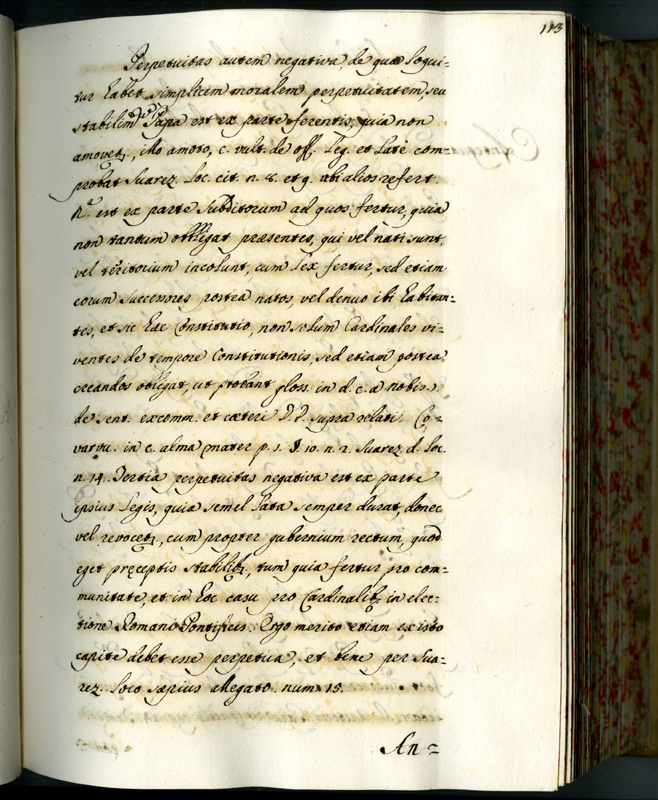 113
Perpetuitas autem negativa, de qua loqui-
tur habet simplicem moralem perpetuitatem, seu
stabilim Papa est ex parte ferentis, quia non
amovetr, illo amoto, c. vult. de off. leg. et latè com-
probat Suarez. loc. cit. n. 8. et 9. ubi alios refert.
2.ª est ex parte Subditorum ad quos fertur, quia
non tantum obligat præsentes, qui vel nati sunt,
vel teritorium incolunt, cum lex fertur, sed etiam
eorum successores postea natos, vel denuo ibi habitan-
tes, et sic hæc Constitutio, non solum Cardinales vi-
ventes de tempore Constitutionis, sed etiam postea
creandos obligat, ut probant gloss. in d. c. a nobis
de sent. excomm. et cæteri D.D. supra relati. Co-
varru. in c. alma mater p. 1. §. 10. n. 2. Suarez d. loc.
n. 14. Tertia perpetuitas negativa est ex parte
ipsius legis, quia semel lata semper durat, donec
vel revocetr, cum propter gubernium rectum, quod
eget præceptis stabilibz, tum quia fertur pro com-
munitate, et in hoc casu pro Cardinalibz in elec-
tione Romani Pontificis. Ergo merito etiam ex isto
capite debet esse perpetua, et bene per Sua-
rez. loco sæpius allegato. num. 15.
An=